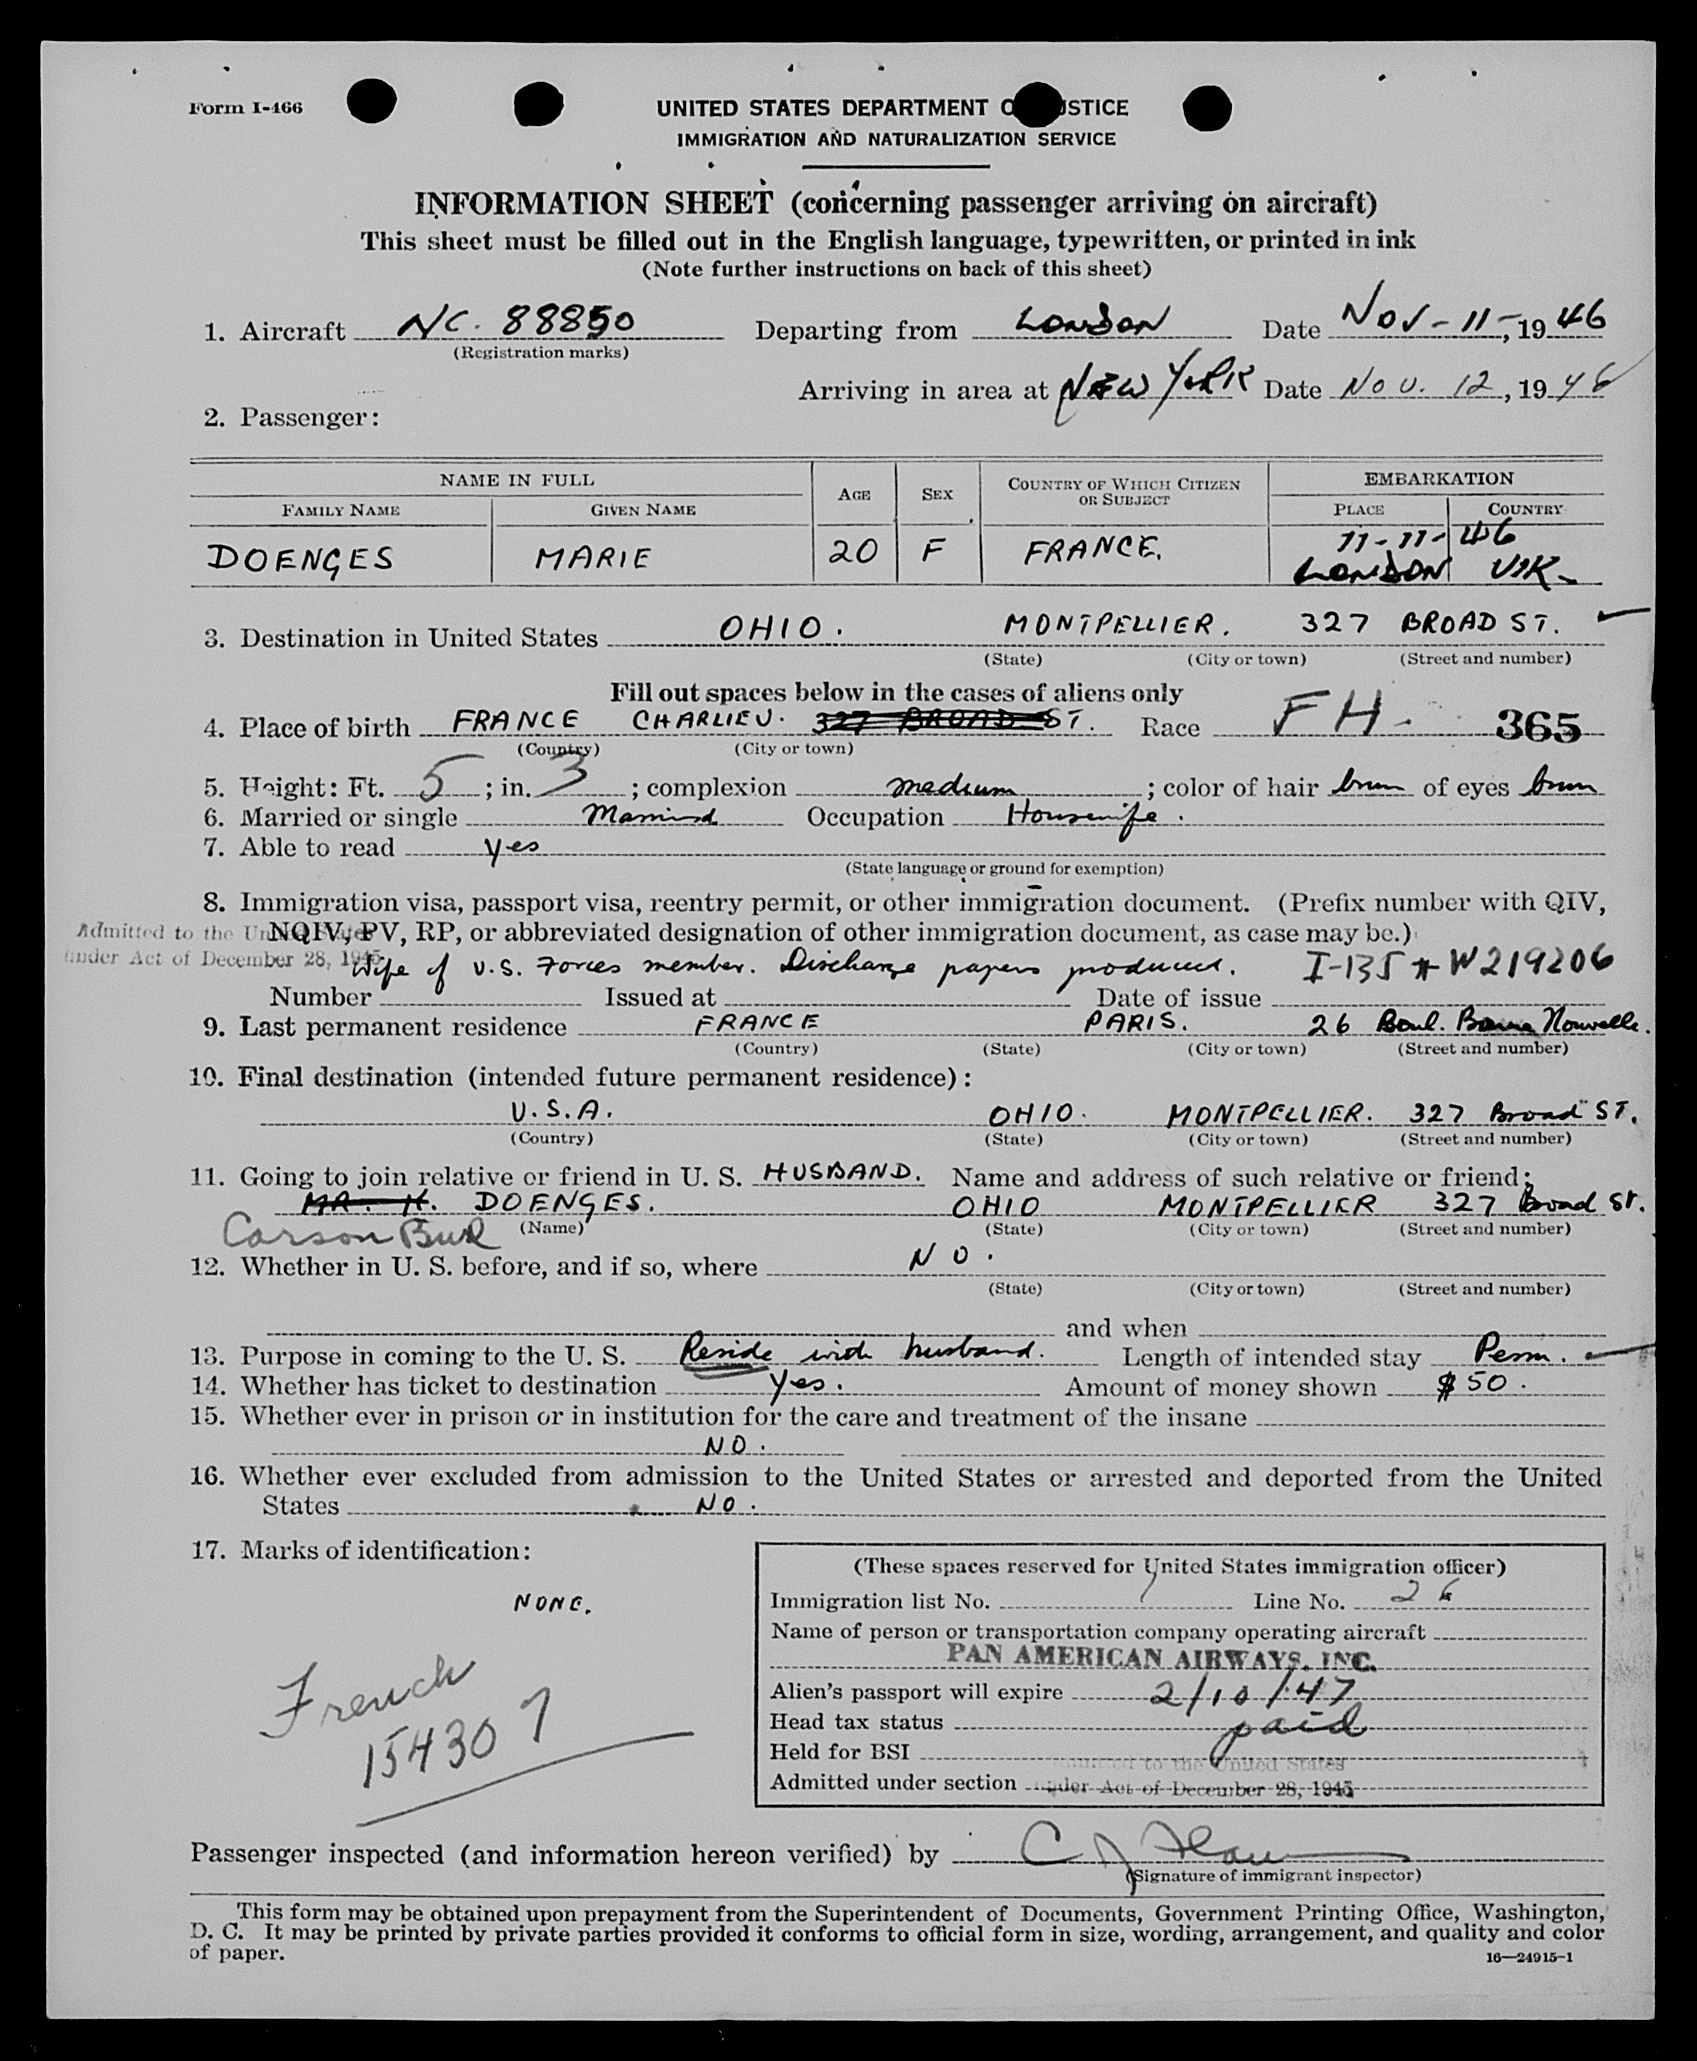 Form I-466
UNITED STATES DEPARTMENT O STICE
IMMIGRATION AND NATURALIZATION SERVICE
INFORMATION SHEET (concerning passenger arriving on aircraft)
This sheet must be filled out in the English language, typewritten, or printed in ink
(Note further instructions on back of this sheet)
1. Aircraft NC. 88850 Departing from LONDON Date NOV-11-, 19 46
(Registration marks)
Arriving in area at NEW YORK Date Nov. 12, 1946
2. Passenger:
NAME IN FULL AGE SEX COUNTRY OF WHICH CITIZEN OR SUBJECT EMBARKATION
FAMILY NAME GIVEN NAME PLACE COUNTRY
11-11-46
DOENGES MARIE 20 F FRANCE. LONDON UK
3. Destination in United States OHIO. MONTPELLIER. 327 BROAD ST.
(State) (City or town) (Street and number)
Fill out spaces below in the cases of aliens only
4. Place of birth FRANCE CHARLIEU. 327 BROAD ST. Race FH. 365
(Country) (City or town)
5. Height: Ft. 5; in. 3; complexion medium; color of hair brun of eyes brun
6. Married or single Married Occupation Housewife.
7. Able to read yes
(State language or ground for exemption)
8. Immigration visa, passport visa, reentry permit, or other immigration document. (Prefix number with QIV,
NQIV, PV, RP, or abbreviated designation of other immigration document, as case may be.)
Admitted to the United States
under Act of December 28, 1945
Wife of U.S. Forces member. Discharge papers produced. I-135 # W219206
Number Issued at Date of issue
9. Last permanent residence FRANCE PARIS. 26 Boul. Bonne Nouvelle.
(Country) (State) (City or town) (Street and number)
10. Final destination (intended future permanent residence):
U.S.A. OHIO. MONTPELLIER. 327 Broad ST.
(Country) (State) (City or town) (Street and number)
11. Going to join relative or friend in U. S. HUSBAND. Name and address of such relative or friend:
MR. H. DOENGES. OHIO MONTPELLIER 327 Broad St.
Carson (Name) (State) (City or town) (Street and number)
12. Whether in U. S. before, and if so, where NO.
(State) (City or town) (Street and number)
and when
13. Purpose in coming to the U. S. Reside with husband. Length of intended stay Perm.
14. Whether has ticket to destination Yes. Amount of money shown $50.
15. Whether ever in prison or in institution for the care and treatment of the insane
NO.
16. Whether ever excluded from admission to the United States or arrested and deported from the United
States NO.
17. Marks of identification:
NONE.
French
154307
(These spaces reserved for United States immigration officer)
Immigration list No. 1 Line No. 26
Name of person or transportation company operating aircraft
PAN AMERICAN AIRWAYS, INC.
Alien's passport will expire 2/10/47
Head tax status paid
Held for BSI
Admitted to the United States
Admitted under section under Act of December 28, 1945
Passenger inspected (and information hereon verified) by C J
(Signature of immigrant inspector)
This form may be obtained upon prepayment from the Superintendent of Documents, Government Printing Office, Washington,
D. C. It may be printed by private parties provided it conforms to official form in size, wording, arrangement, and quality and color
of paper.
16—24915-1